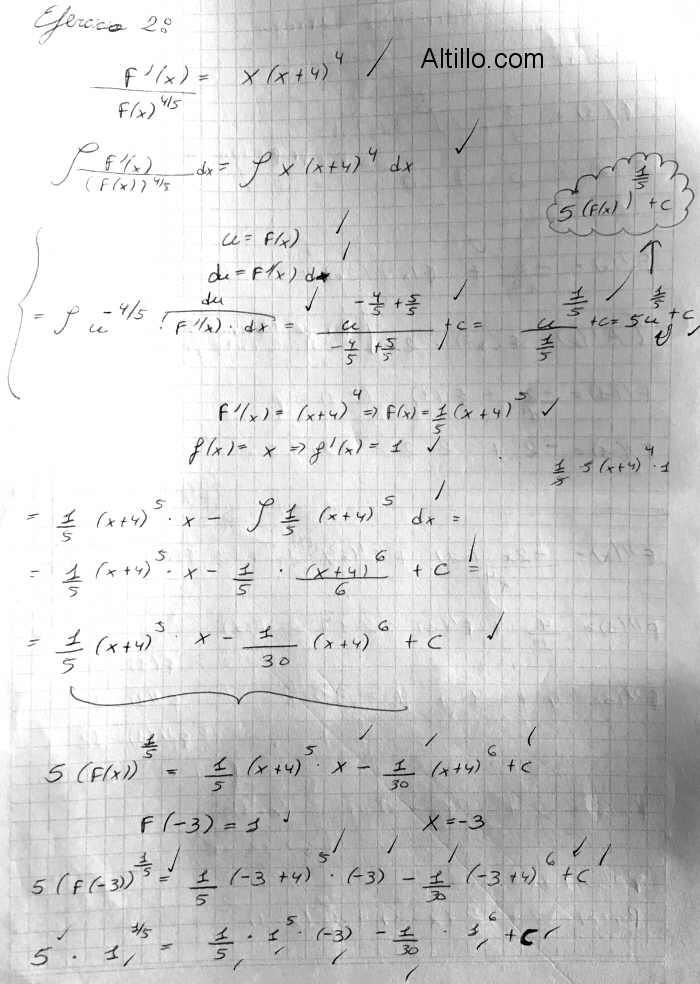 Ejercicio 2:
Altillo.com
F'(x) / F(x)^4/5 = x (x+4)^4
∫ F'(x) / (F(x))^4/5 dx = ∫ x (x+4)^4 dx
5 (F(x))^1/5 + c
u = F(x)
du = F'(x) dx
du
= ∫ u^-4/5 · F'(x) · dx = u^(-4/5 + 5/5) / (-4/5 + 5/5) + c = u^1/5 / (1/5) + c = 5 u^1/5 + c
F'(x) = (x+4)^4 ⇒ F(x) = 1/5 (x+4)^5
g(x) = x ⇒ g'(x) = 1
1/5 · 5 (x+4)^4 · 1
= 1/5 (x+4)^5 · x - ∫ 1/5 (x+4)^5 dx =
= 1/5 (x+4)^5 · x - 1/5 · (x+4)^6 / 6 + C =
= 1/5 (x+4)^5 · x - 1/30 (x+4)^6 + C
5 (F(x))^1/5 = 1/5 (x+4)^5 · x - 1/30 (x+4)^6 + C
F(-3) = 1 x = -3
5 (F(-3))^1/5 = 1/5 (-3+4)^5 · (-3) - 1/30 (-3+4)^6 + C
5 · 1^1/5 = 1/5 · 1^5 · (-3) - 1/30 · 1^6 + C